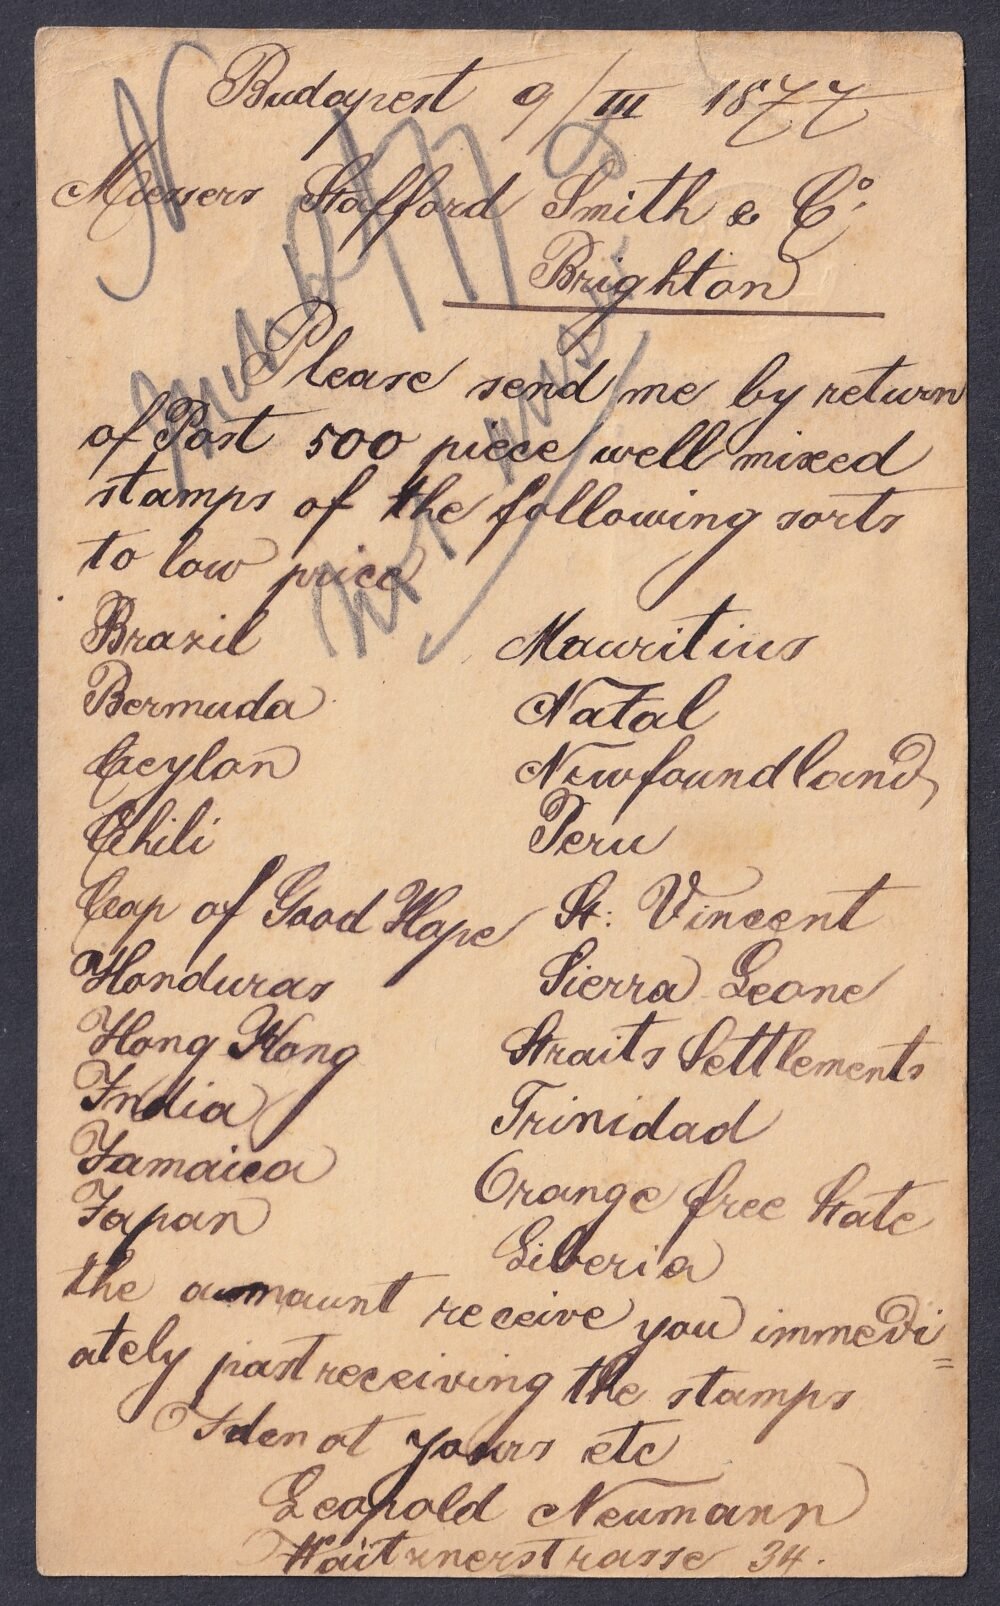 Budapest 9/III 1877
Messers Stafford Smith & Co:
Brighton
Please send me by return
of Post 500 piece well mixed
stamps of the following sorts
to low price
Brazil
Bermuda
Ceylon
Chili
Cap of Good Hope
Honduras
Hong Kong
India
Jamaica
Japan
Mauritius
Natal
Newfoundland
Peru
St: Vincent
Sierra Leone
Straits Settlements
Trinidad
Orange free State
Liberia
the aumaunt receive you immedi=
ately past receiving the stamps
yours etc
Leopold Neumann
Waitznerstrasse 34.